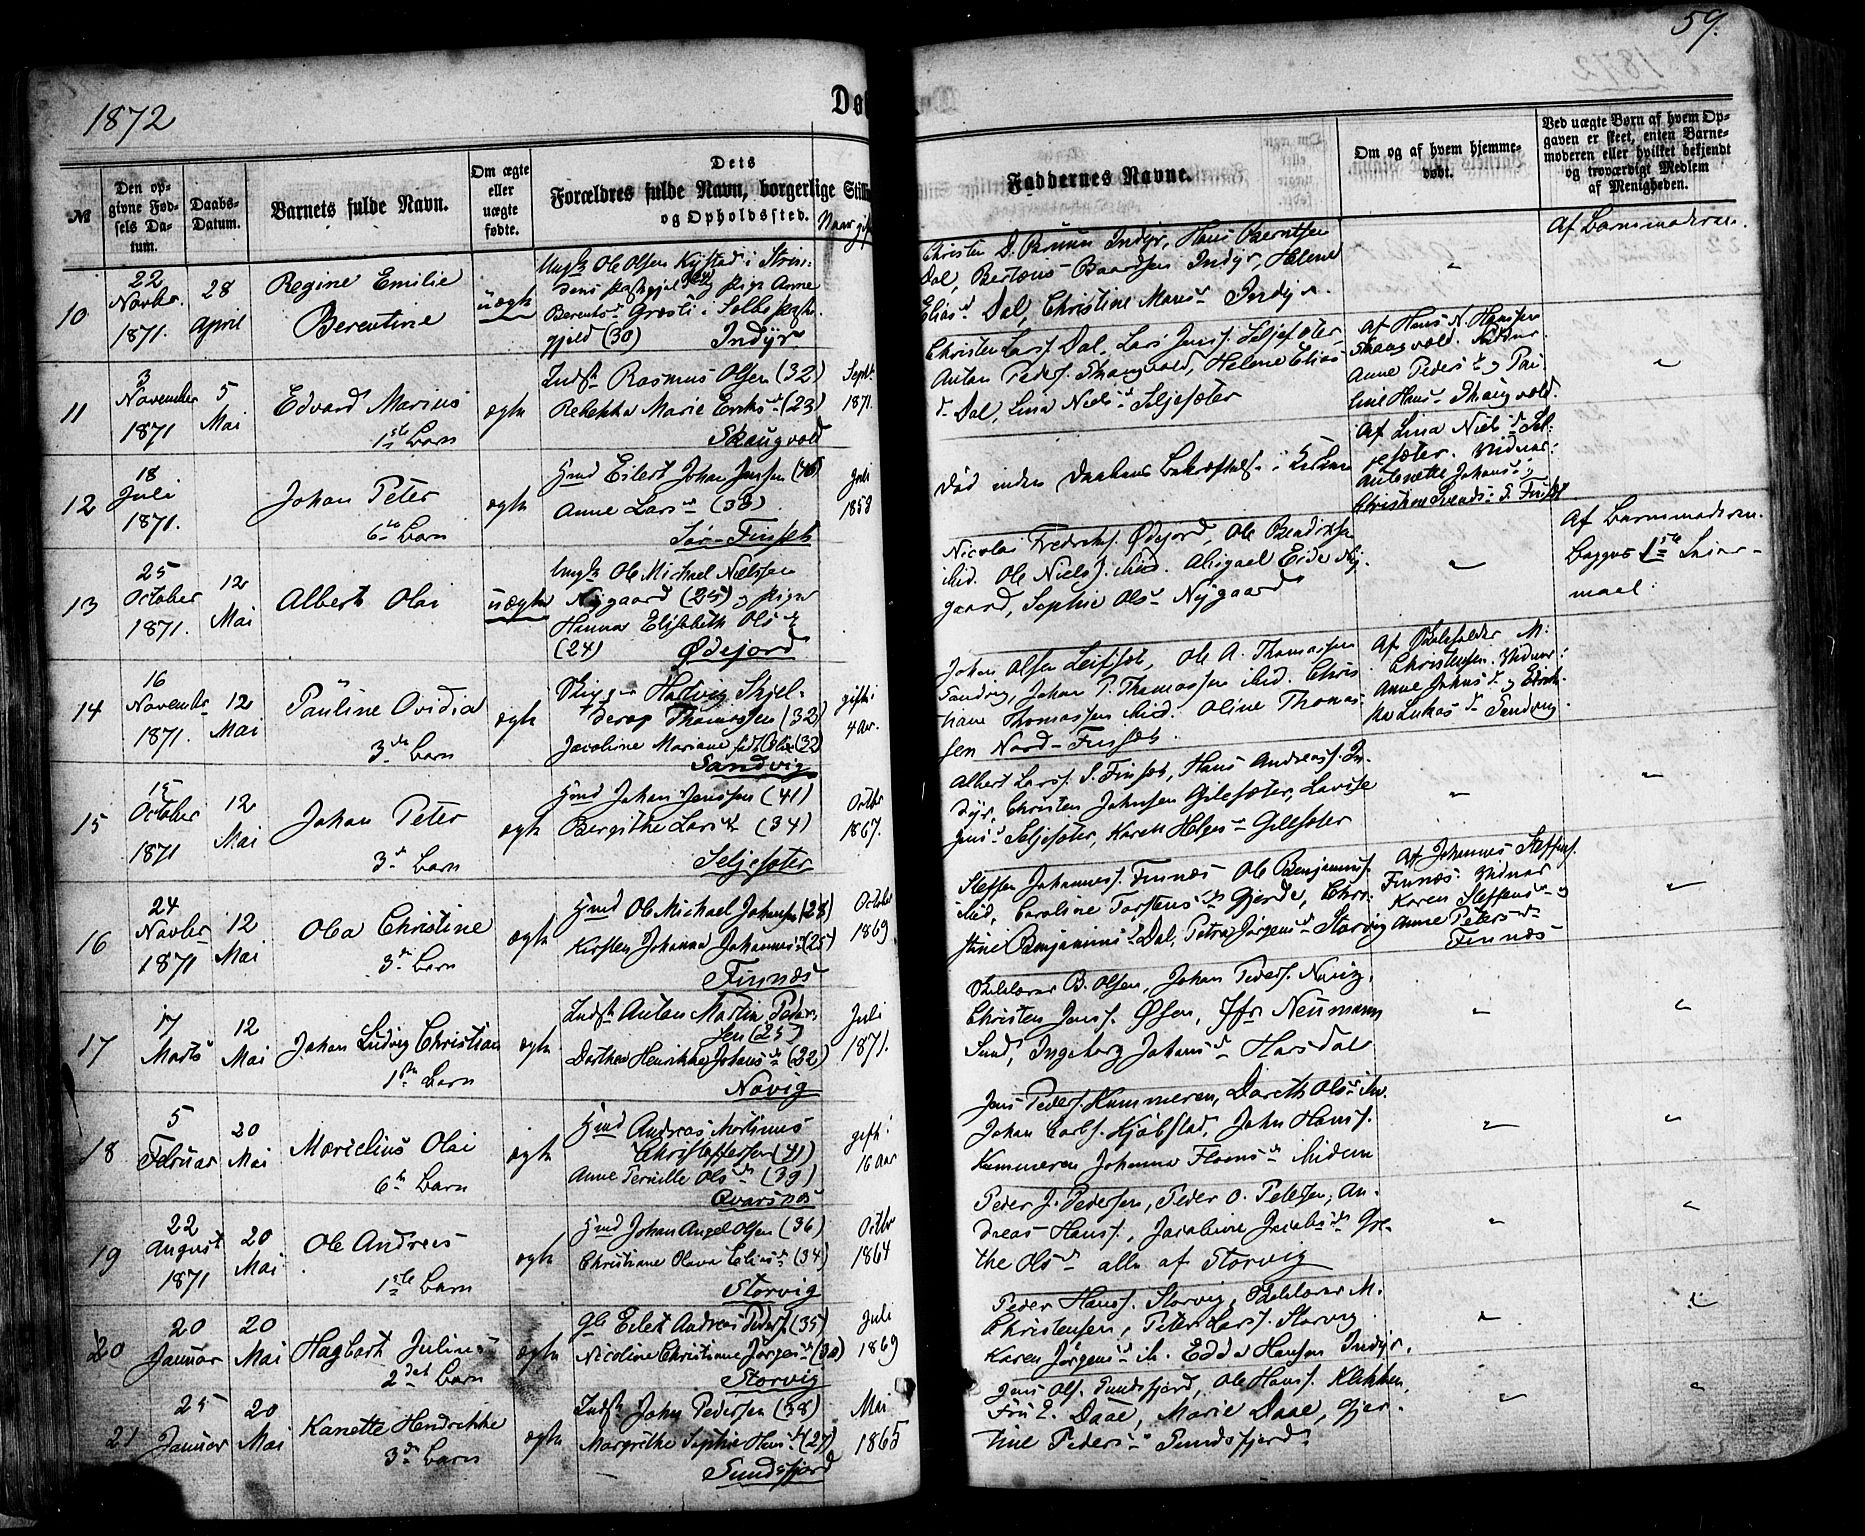 59.
1872
Døb
№
Den opgivne Fødsels Datum.
Daabs-Datum.
Barnets fulde Navn.
Om ægte eller uægte fødte.
Dets
Forældres fulde Navn, borgerlige Stilling
og Opholdssted.
Faddernes Navne.
Om og af hvem hjemmedøbt.
Ved uægte Børn af hvem Opgaven er skeet, enten Barnemoderen eller hvilket bekjendt og troværdigt Medlem af Menigheden.
10
22
Novbr.
1871.
28
April
Regine Emilie
Berentine
uægte
Ungk. Ole Olsen Kystad i Strin-
Berents Græsli i Selbo
gjeld (30) Indyr
Christen D. Bruun Indyr, Hans Berntsen
Dal, Bertæus Baardsen Indyr, Helene
Elias d. Dal, Christine Mons d. Indyr.
"
Af Barnemoderen.
11
3
November
1871
5
Mai
Edvard Marius
1ste Barn
ægte
Indst. Rasmus Olsen (32)
Rebekka Marie Eriks d. (23)
Skaugvold
Septr.
1871.
Christen Lars. Dal, Lars Jens. Seljesæter
Anton Peders. Skaugvold, Helene Elias
d. Dal, Lina Niels d. Seljesæter
Af Hans N. Hansen
Skaugvold. Vidner
Anne Peders d. og Pau-
line Hans d. Skaugvold.
"
12
18
Juli
1871.
Johan Peter
6te Barn
ægte
Gmd Eilert Johan Jenssen (40)
Anne Lars d. (38)
Sør-Finset
Juli
1858
Død inden Daabens Bekræftelse i Kirken
Af Lina Niels d. Sel-
jesæter. Vidner:
Antonette Johans d. og
13
25
October
1871.
12
Mai
Albert Olai
uægte
Ungk. Ole Michael Nielssen
Nygaard (25) og Pige
Hanna Elisabeth Ols d.
(24) Ødejord
Nicolai Fredriks. Ødejord, Ole Bendiksen
ibid. Ole Niels. ibid. Abigael Eide Ny-
gaard, Sophie Ols d. Nygaard
"
Af Barnemoderen.
Begges 1ste Leier-
maal
14
16
November
1871.
12
Mai
Pauline Ovidia
3die Barn
ægte
Thomassen (32)
Sandvig
gifte i
4 Aar.
Johan Olsen Leifset, Ole A. Thomassen
Sandvig, Johan P. Thomassen ibid. Chris
tiane Thomassen ibid. Oline Thomas-
sen Nord-Finset.
Christensen. Vidner:
Anne Johns d. og
Lukas d. Sandvig
15
15
October
1871
12
Mai
Johan Peter
3die Barn
ægte
Gmd Johan Jenssen (41)
Bergithe Lars d. (34)
Seljesæter
Octbr
1867.
Albert Lars. S. Finset, Hans Andreas. In-
dyr, Christen Johnsen Gilesæter, Lovise
Jens d. Seljesæter, Karen Helges d. Gilesæter
"
"
16
24
Novbr
1871
12
Mai
Olea Christine
3die Barn
ægte
Gmd Ole Michael Johansen (28)
Kirsten Johanna Johannes d. (25)
Finnes
October
1869
Steffen Johannes. Finnæs, Ole Benjamins.
ibid, Caroline Torstens d. Gjerde, Chri-
stine Benjamins d. Dal, Petra Jørgens d. Storvig
Af Johannes Steffens.
Finnæs. Vidner
Karen Steffens d. og
Anne Peters d.
Finnæs
"
17
17
Marts
12
Mai
Johan Ludvig Christian
1ste Barn
ægte
Indst. Anton Martin Peder-
sen (25)
Dorthea Henrikke Johans d. (22)
Novig
Juli
1871.
B. Olsen, Johan Peders. Novig,
Christen Jens. Øsen, Jfr. Neumann
Sund, Ingeborg Johans d. Horsdal
"
"
18
5
Februar
20
Mai
Marcelius Olai
6te Barn
ægte
Gmd Andreas Mortinus
Christoffersen (41)
Anne Pernille Ols d. (39)
Qvarsnes
gifte i
16 Aar
Jens Peders. Kummeren, Doreth Ols d. ibid.
Johan Carls. Kjøbstad, John Hans.
Kummeren, Johanna Floens d. ibidem
"
"
19
22
August
1871
20
Mai
Ole Andreas
1ste Barn
ægte
Gmd Johan Angel Olsen (36)
Christiane Olava Elias d. (34)
Storvig
Octbr
1864
Peder J. Pedersen, Peder O. Petersen, An-
dreas Hans., Jacobine Jacobs d., Gre-
the Ols d. alle af Storvig
"
"
20
20
Januar
20
Mai
Hagbart Julius
2det Barn
ægte
Gb Eilert Andreas Peders. (35)
Nicoline Christiane Jørgens d. (30)
Storvig
Juli
1869
Peder Hans. Storvig, M.
Christensen, Peter Lars. Storvig
Karen Jørgens d. ib. Edda Hansen Indyr.
"
"
21
25
Januar
20
Mai
Kanette Hendrikke
3die Barn
ægte
Indst. John Pedersen (38)
Margrethe Sophie Hans d. (27)
Sundsfjord
Mai
1865
Jens Ols. Sundsfjord, Ole Hans. Klakken,
Fru E. Daae, Marie Daae, Gjer-
tine Peders d. Sundsfjord
"
"